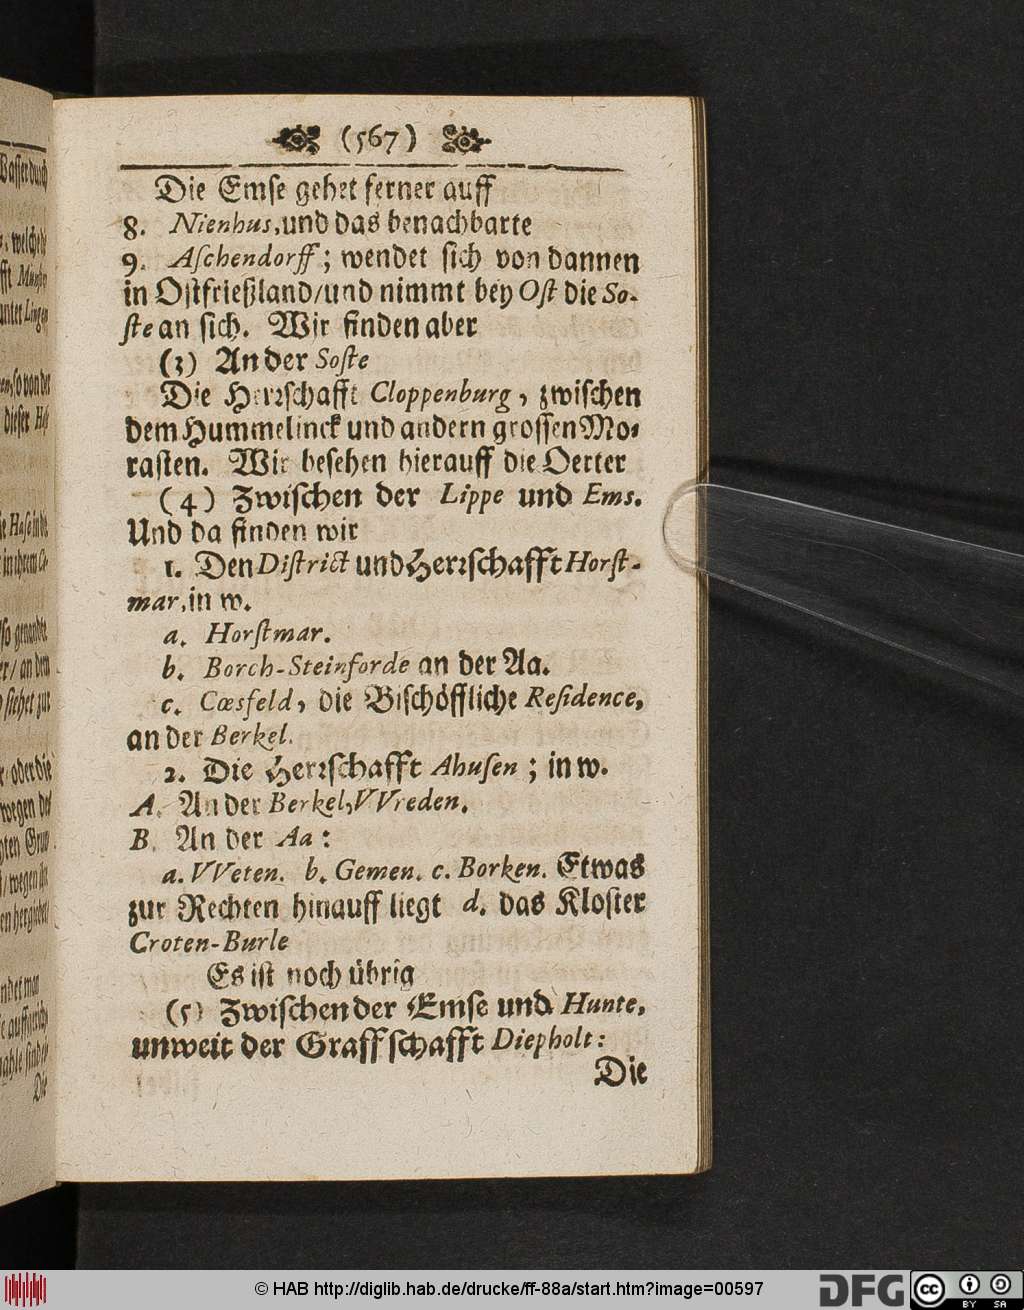 (567)
Die Emse gehet ferner auff
8. Nienhus, und das benachbarte
9. Aſchendorff; wendet ſich von dannen
in Oſtfrießland/und nimmt bey Oſt die So-
ſte an ſich. Wir finden aber
(3) An der Soſte
Die Herꝛſchafft Cloppenburg, zwiſchen
dem Hummelinck und andern groſſen Mo-
raſten. Wir beſehen hierauff die Oerter
(4) Zwiſchen der Lippe und Ems.
Und da finden wir
1. Den Diſtrict und Herꝛſchafft Horſt-
mar, in w.
a. Horſtmar.
b. Borch-Steinforde an der Aa.
c. Cœsfeld, die Biſchöffliche Reſidence,
an der Berkel.
2. Die Herꝛſchafft Ahuſen; in w.
A. An der Berkel, VVreden.
B. An der Aa:
a. VVeten. b. Gemen. c. Borken. Etwas
zur Rechten hinauff liegt d. das Kloſter
Croten-Burle
Es iſt noch übrig
(5) Zwiſchen der Emſe und Hunte,
unweit der Graffſchafft Diepholt:
Die
© HAB http://diglib.hab.de/drucke/ff-88a/start.htm?image=00597
DFG
cc BY SA